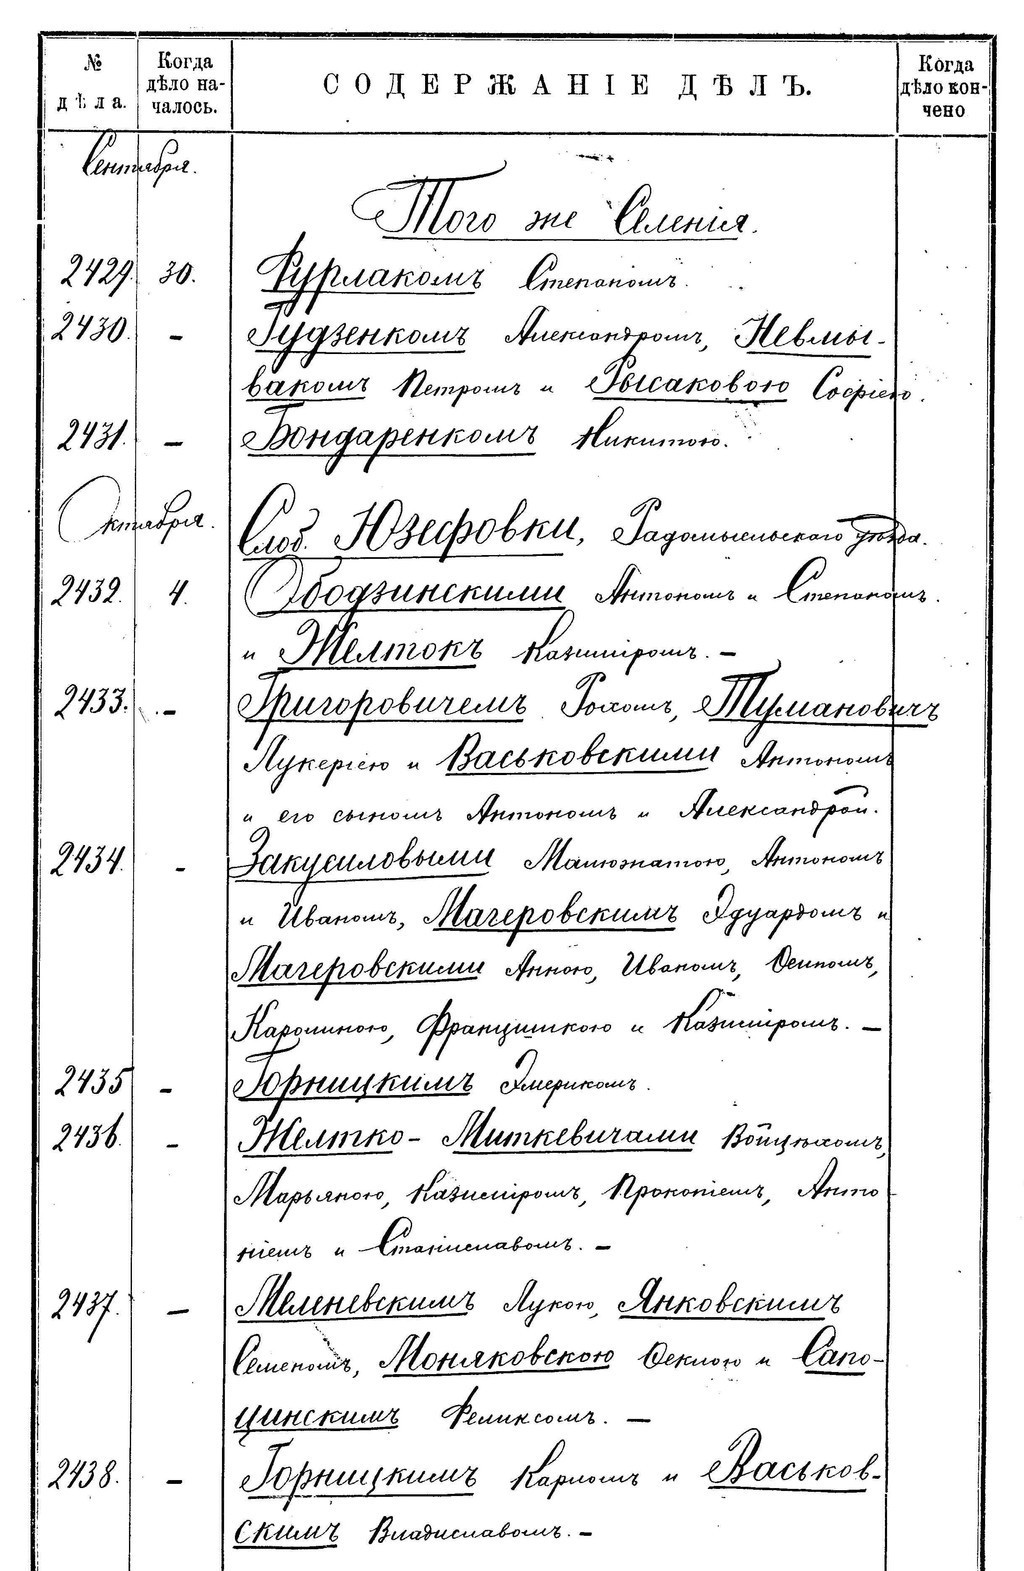 № дѣла. Когда дѣло началось. СОДЕРЖАНІЕ ДѢЛЪ. Когда дѣло кончено
Сентября.
Того же Селенія.
2429. 30. Бурлакомъ Степаномъ.
2430. - Гудзенкомъ Александромъ, Невмы-
вакомъ Петромъ и Рысаковою Софіею.
2431. - Бондаренкомъ Никитою.
Октября. Слоб. Юзефовки, Радомысльскаго уѣзда.
2432. 4. Збодзинскими Антономъ и Степаномъ
и Желтокъ Казиміромъ. -
2433. - Григоровичемъ Рохомъ, Тумановичъ
Лукеріею и Васьковскими Антономъ
и его сыномъ Антономъ и Александрой.
2434. - Закусиловыми Антономъ
и Иваномъ, Магеровскимъ Эдуардомъ и
Магеровскими Анною, Иваномъ, Осипомъ,
Каролиною, Францишкою и Казиміромъ. -
2435 - Горницкимъ Эмерикомъ.
2436. - Желтко-Миткевичами Войцѣхомъ,
Марьяною, Казиміромъ, Прокопіемъ, Анто
ніемъ и Станиславомъ. -
2437. - Меленевскимъ Лукою, Янковскимъ
Семеномъ, Моняковскою Ѳеклою и Сапо-
цинскимъ Феликсомъ. -
2438. - Горницкимъ Карломъ и Васьков-
скимъ Владиславомъ. -